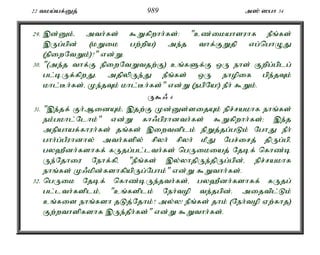 22 வமய்யக்னுத் 989 அஸ்ஸபா 34
29. இன்னும், அவர்கள் கூறுகிறார்கள்: "உண்மையாளராக நீங்கள்
இருப்பின் (மறுமை பற்றிய) அந்த வாக்குறுதி எப்பொழுது
(நிறைவேறும்)?" என்று.
30. "(அந்த வாக்கு நிறைவேறுவதற்கு) உங்களுக்கு ஒரு நாள் குறிப்பிடப்
பட்டிருக்கிறது. அதிலிருந்து நீங்கள் ஒரு நாழிகை பிந்தவும்
மாட்டீர்கள், முந்தவும் மாட்டீர்கள்" என்று (நபியே!) நீர் கூறும்.
ருகூஃ 4
31. "இந்தக் குர்ஆனையும், இதற்கு முன்னுள்ளதையும் நிச்சயமாக நாங்கள்
நம்பமாட்டோம்" என்று காஃபிரானவர்கள் கூறுகிறார்கள்; இந்த
அநியாயக்காரர்கள் தங்கள் இறைவனிடம் நிறுத்தப்படும் போது நீர்
பார்ப்பீரானால் அவர்களில் சிலர் சிலர் மீது பேச்சைத் திருப்பி,
பலஹீனர்களாகக் கருதப்பட்டவர்கள் பெருமையைத் தேடிக் கொண்டி
ருந்தோரை நோக்கி, "நீங்கள் இல்லாதிருந்திருப்பின், நிச்சயமாக
நாங்கள் முஃமின்களாகியிருப்போம்" என்று கூறுவார்கள்.
32. பெருமை தேடிக் கொண்டிருந்தவர்கள், பலஹீனர்களாகக் கருதப்
பட்டவர்களிடம், "உங்களிடம் நேர்வழி வந்தபின், அதைவிட்டும்
உங்களை நாங்களா தடுத்தோம்? அல்ல! நீங்கள் தாம் (நேர்வழி ஏற்காத)
குற்றவாளிகளாக இருந்தீர்கள்" என்று கூறுவார்கள்.